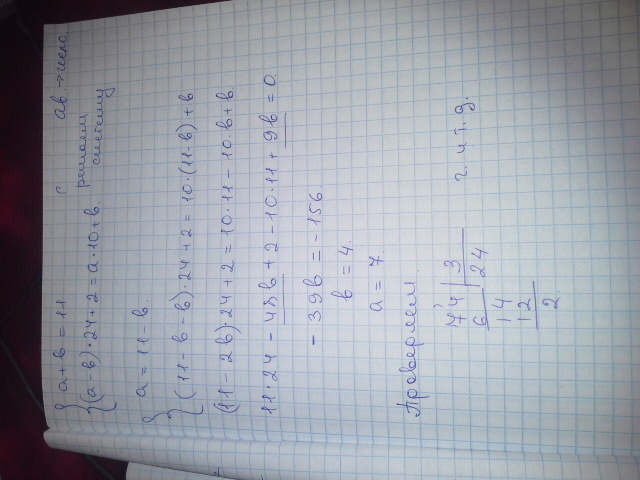 ab → число
{ a + b = 11
{ (a-b)·24+2 = a·10+b. решаем систему
a = 11 - b.
{ (11-b-b)·24+2 = 10·(11-b)+b
(11-2b)·24+2 = 10·11-10·b+b.
11·24 - 48b + 2 - 10·11 + 9b = 0.
-39b = -156
b = 4
a = 7.
Проверяем.
74 | 3
6 24
14
12
2
ч. и т. д.